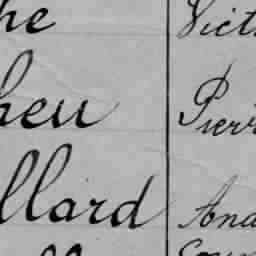 he Vict
heu Pierr
llard And